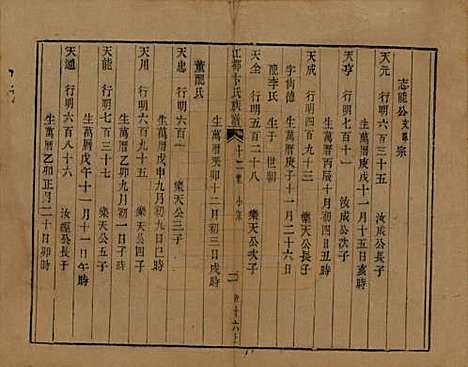 志龍公支單宗
天元 行明六百三十五 汝成公長子
天亨 行明六百三十七 汝成公次子
生萬曆庚戌十一月十五日亥時
天成 行明四百九十三 樂天公長子
生萬曆丙辰十月初四日丑時
字尚德 生萬曆庚子十一月二十六日
配李氏 生子一 世朝
天全 行明五百二十八 樂天公次子
江都卞氏族譜
生萬曆癸卯十二月初三日戌時
董配氏
天忠 行明六百一 樂天公三子
生萬曆戊申九月初九日巳時
天川 行明六百九十五 樂天公四子
生萬曆乙卯九月初一日子時
天龍 行明七百三十七 樂天公五子
生萬曆戊午十一月十一日午時
天通 行明六百八十六 汝經公長子
生萬曆乙卯正月二十日卯時